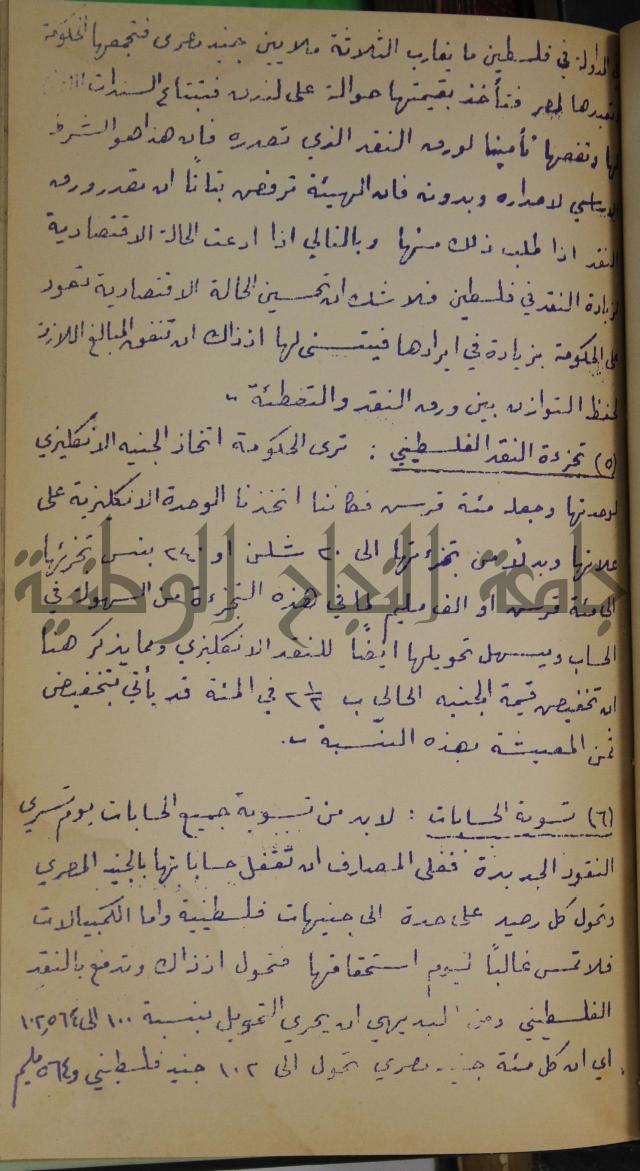 المداولة في فلسطين ما يقارب الثلاثة ملايين جنيه مصري فتجمعها الحكومة
وتعيدها لمصر فتأخذ بقيمتها حوالة على لندن فتبتاع السندات
بها وتضعها تأمينا لورق النقد الذي تصدره فان هذا هو الشرط
الاساسي لاصداره وبدونه فان الهيئة ترفض بتاتاً ان تصدر ورق
النقد اذا طلب ذلك منها وبالتالي اذا ادعت الحالة الاقتصادية
لزيادة النقد في فلسطين فلا شك ان تحسين الحالة الاقتصادية تعود
على الحكومة بزيادة في ايرادها فيتسنى لها اذ ذاك ان تنفق المبالغ اللازمة
لحفظ التوازن بين ورق النقد والتغطئة ..
(٥) تجزءة النقد الفلسطيني : ترى الحكومة اتخاذ الجنيه الانكليزي
لوحدتها وجعله مئة قرس فكاننا اتخذنا الوحدة الانكليزية على
علاتها وبدلاً من تجزئتها الى ٢٠ شلن او ٢٤٠ بنس تجزئها
الى مئة قرس او الف مليم لما في هذه التجزءة من السهولة في
الحساب ويسهل تحويلها ايضاً للنقد الانكليزي ومما يذكر هنا
ان تخفيض قيمة الجنيه الحالي ب ٢ ١/٢ في المئة قد يأتي بتخفيض
ثمن المعيشة بهذه النسبة ..
(٦) تسوية الحسابات : لا بد من تسوية جميع الحسابات يوم تسري
النقود الجديدة فعلى المصارف ان تقفل حساباتها بالجنيه المصري
وتحول كل رصيد على حدة الى جنيهات فلسطينية واما الكمبيالات
فلا تمس غالباً ليوم استحقاقها فتحول اذ ذاك وتدفع بالنقد
الفلسطيني ومن البديهي ان يجري التحويل بنسبة ١٠٠ الى ١٠٢,٥٦٤
اي ان كل مئة جنيه مصري تحول الى ١٠٢ جنيه فلسطيني و٥٦٤ مليم
جامعة النجاح الوطنية